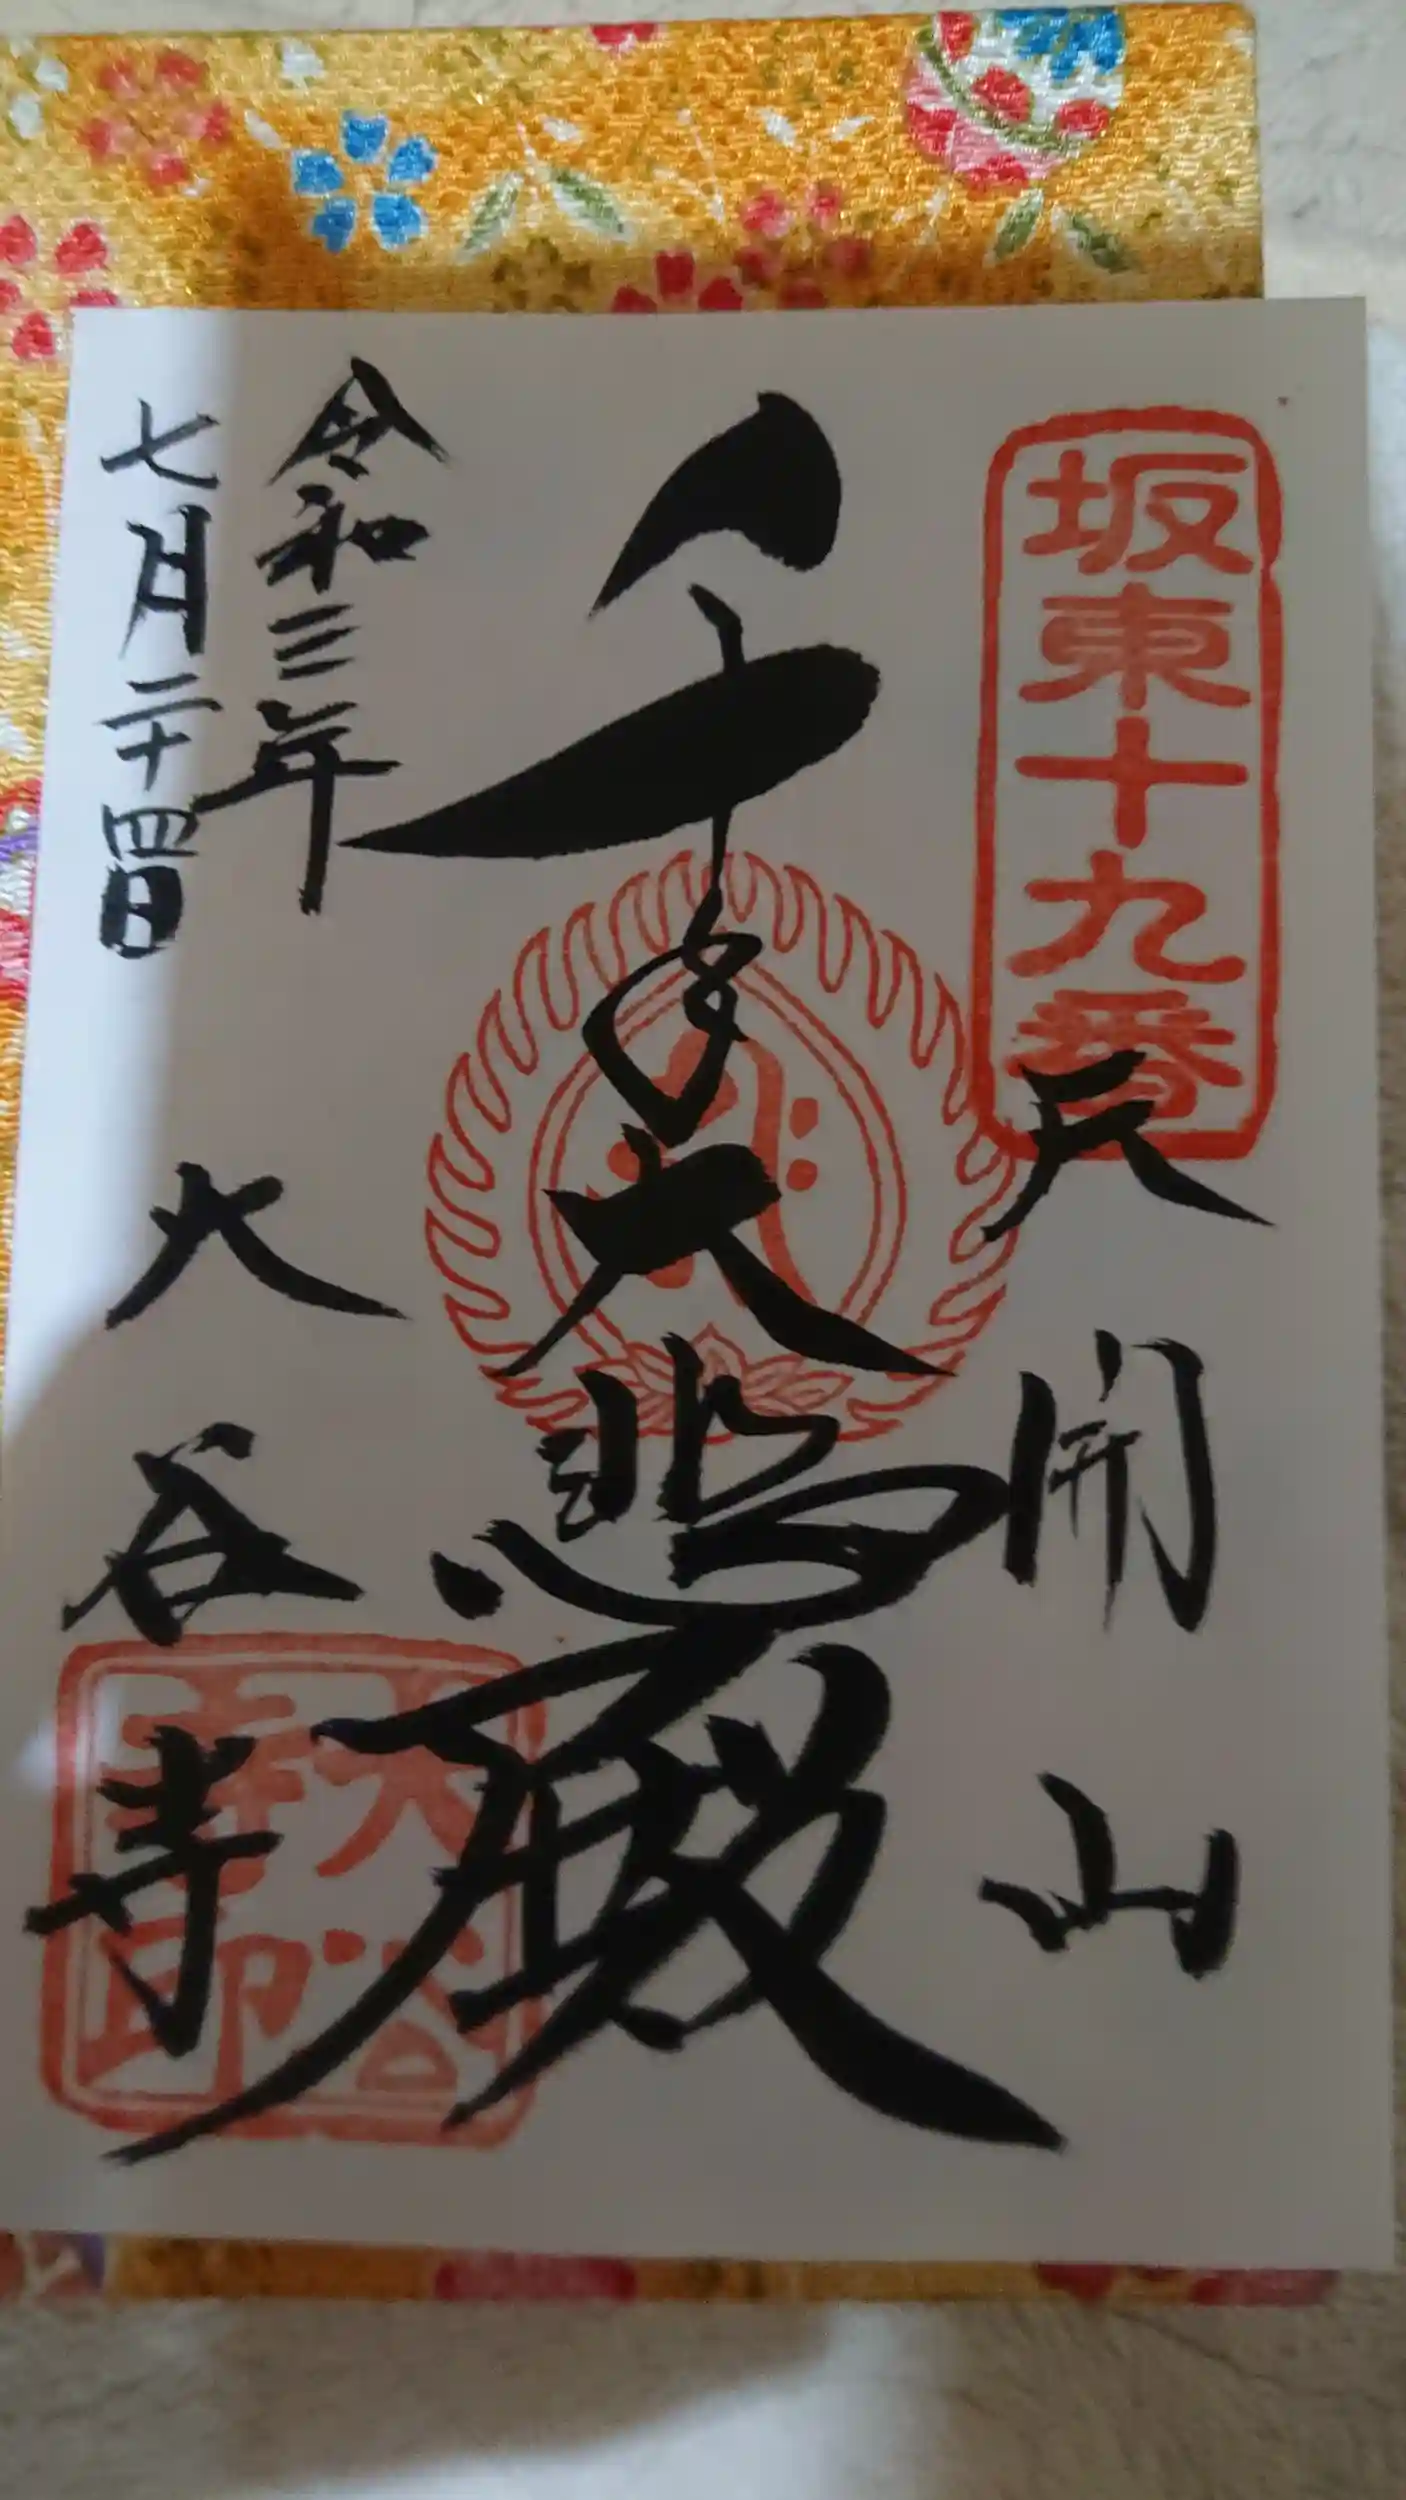 坂東十九番
天開山
千手大悲殿
令和三年
七月二十四日
大谷寺
大谷寺印